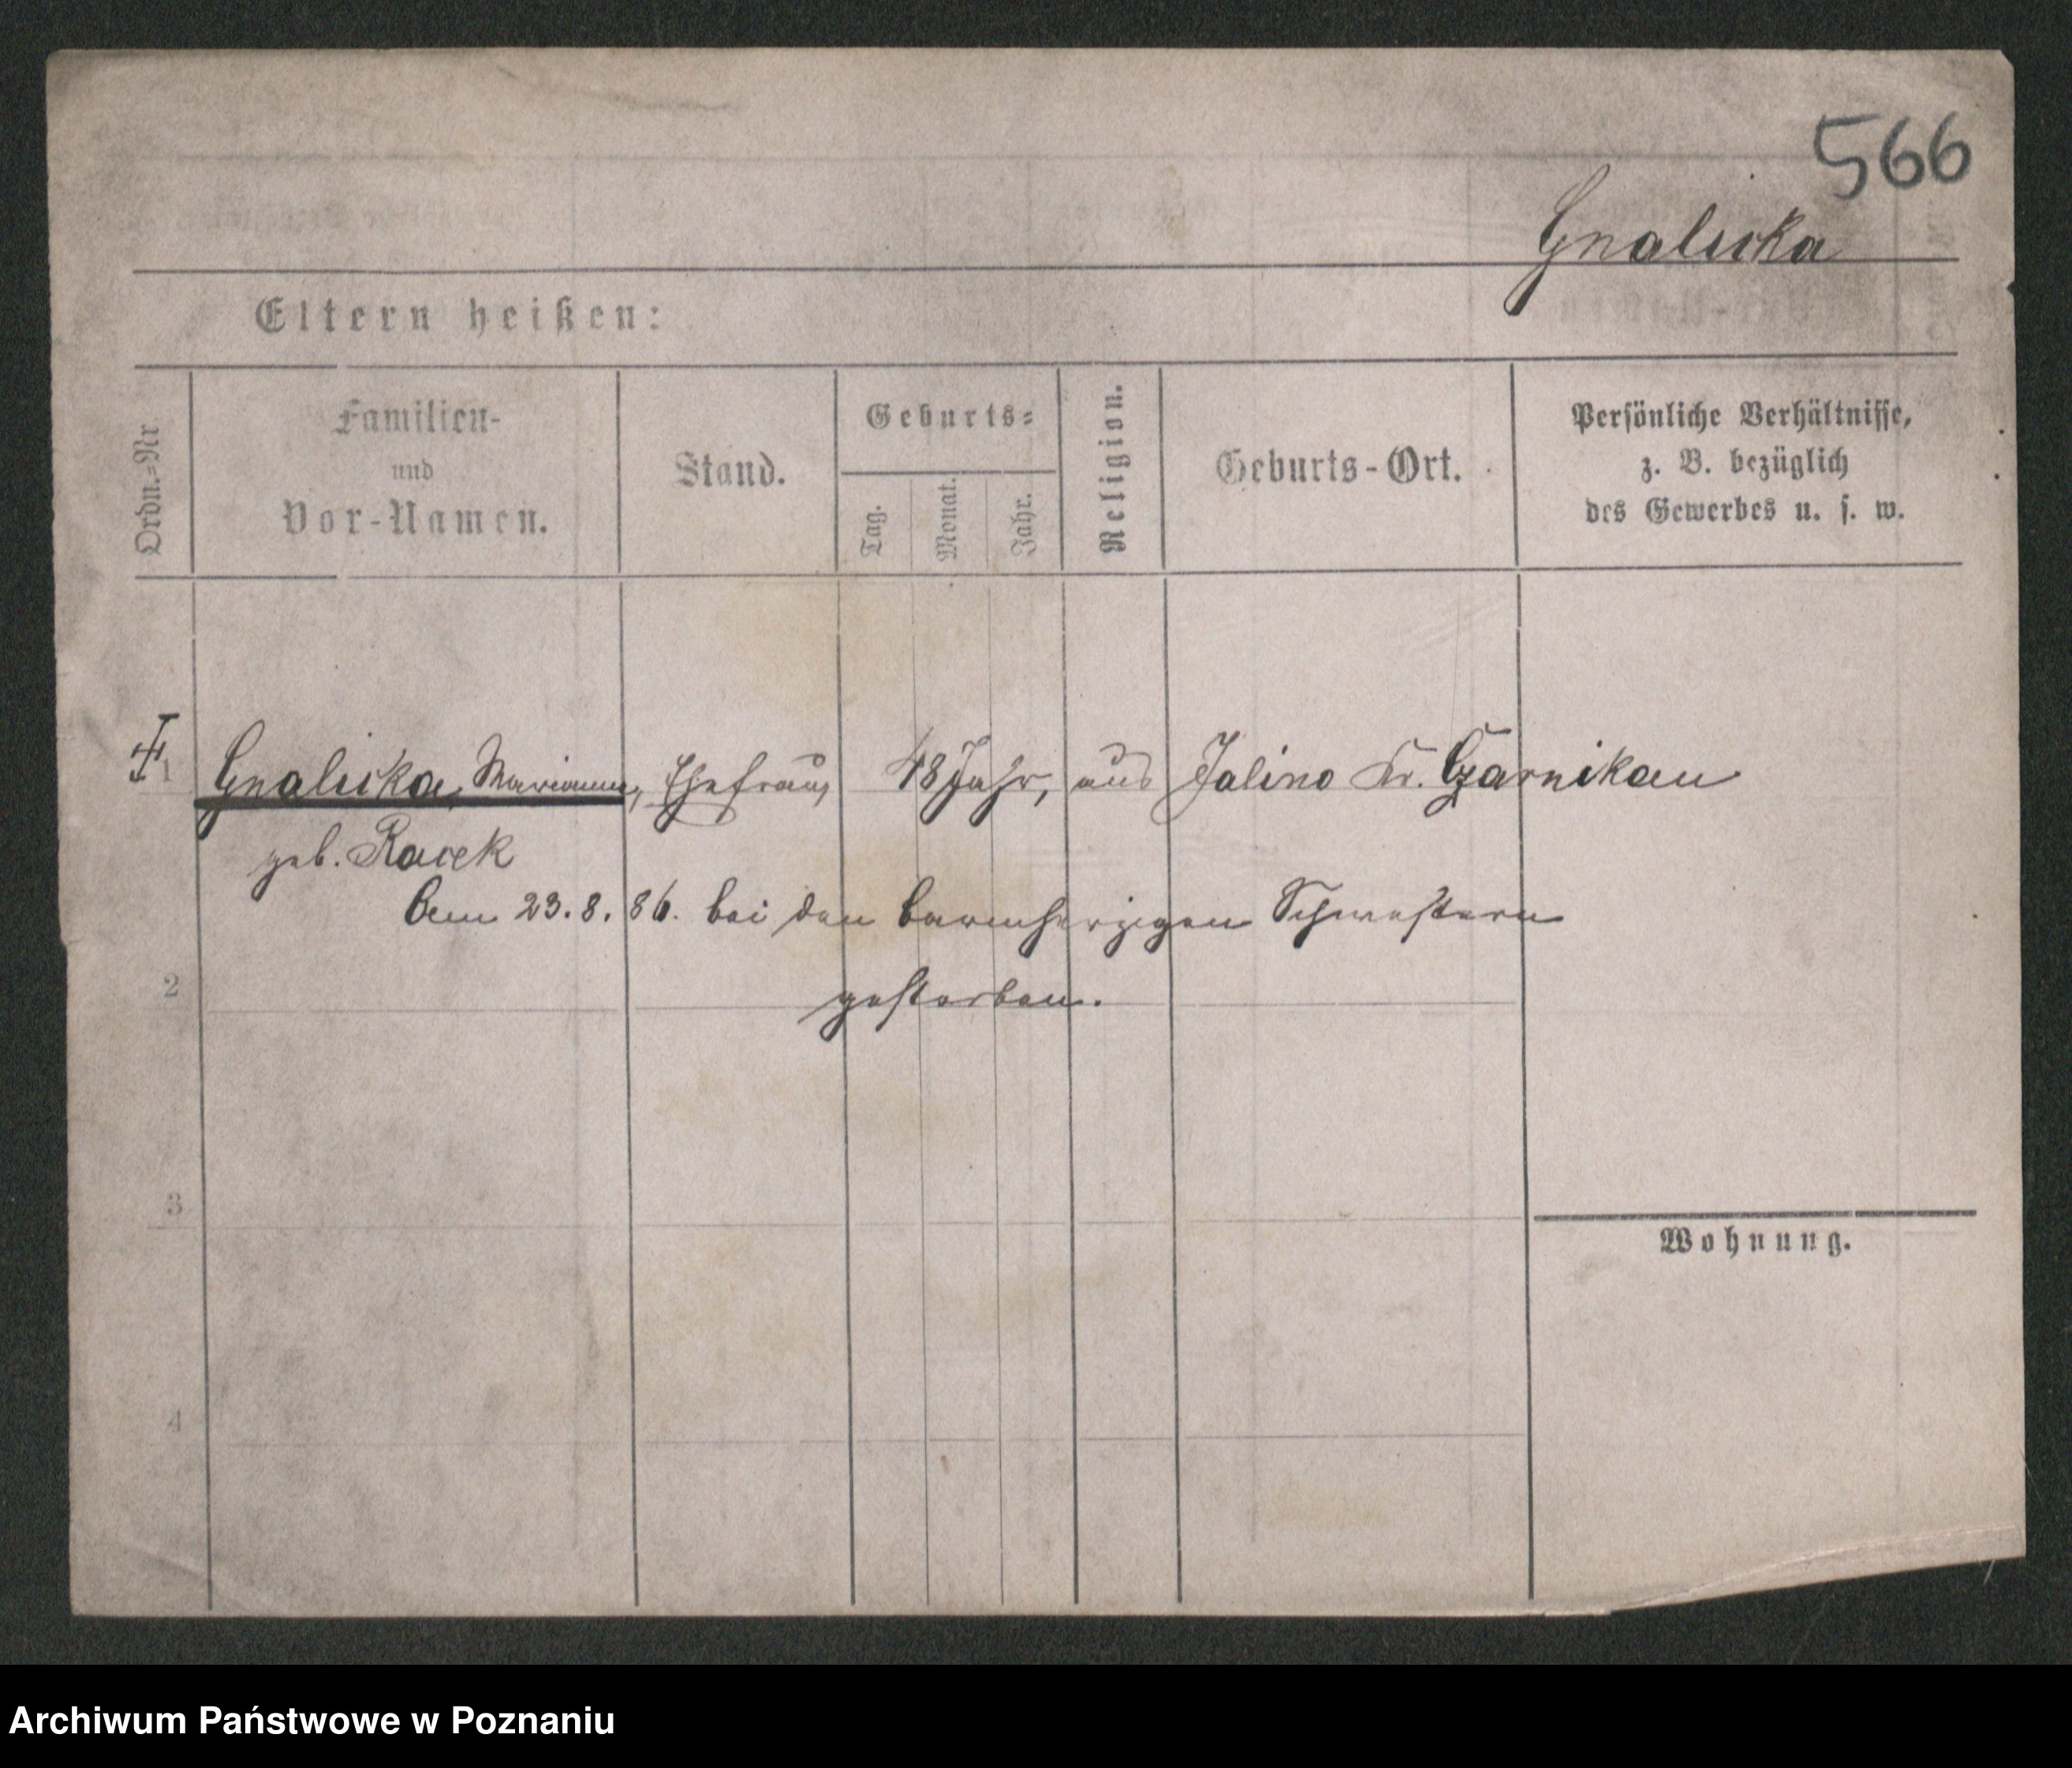 566
Gnalicka
Eltern heißen:
Ordn.=Nr.
Familien-
und
Vor-Namen.
Stand.
Geburts=
Tag.
Monat.
Jahr.
Religion.
Geburts-Ort.
Persönliche Verhältnisse,
z. B. bezüglich
des Gewerbes u. s. w.
1 Gnalicka, Marianna, Ehefrau, 48 Jahr, aus Jalino Kr. Czarnikau
geb. Racek
Am 23.8.86. bei den barmherzigen Schwestern
2
gestorben.
3
Wohnung.
4
Archiwum Państwowe w Poznaniu